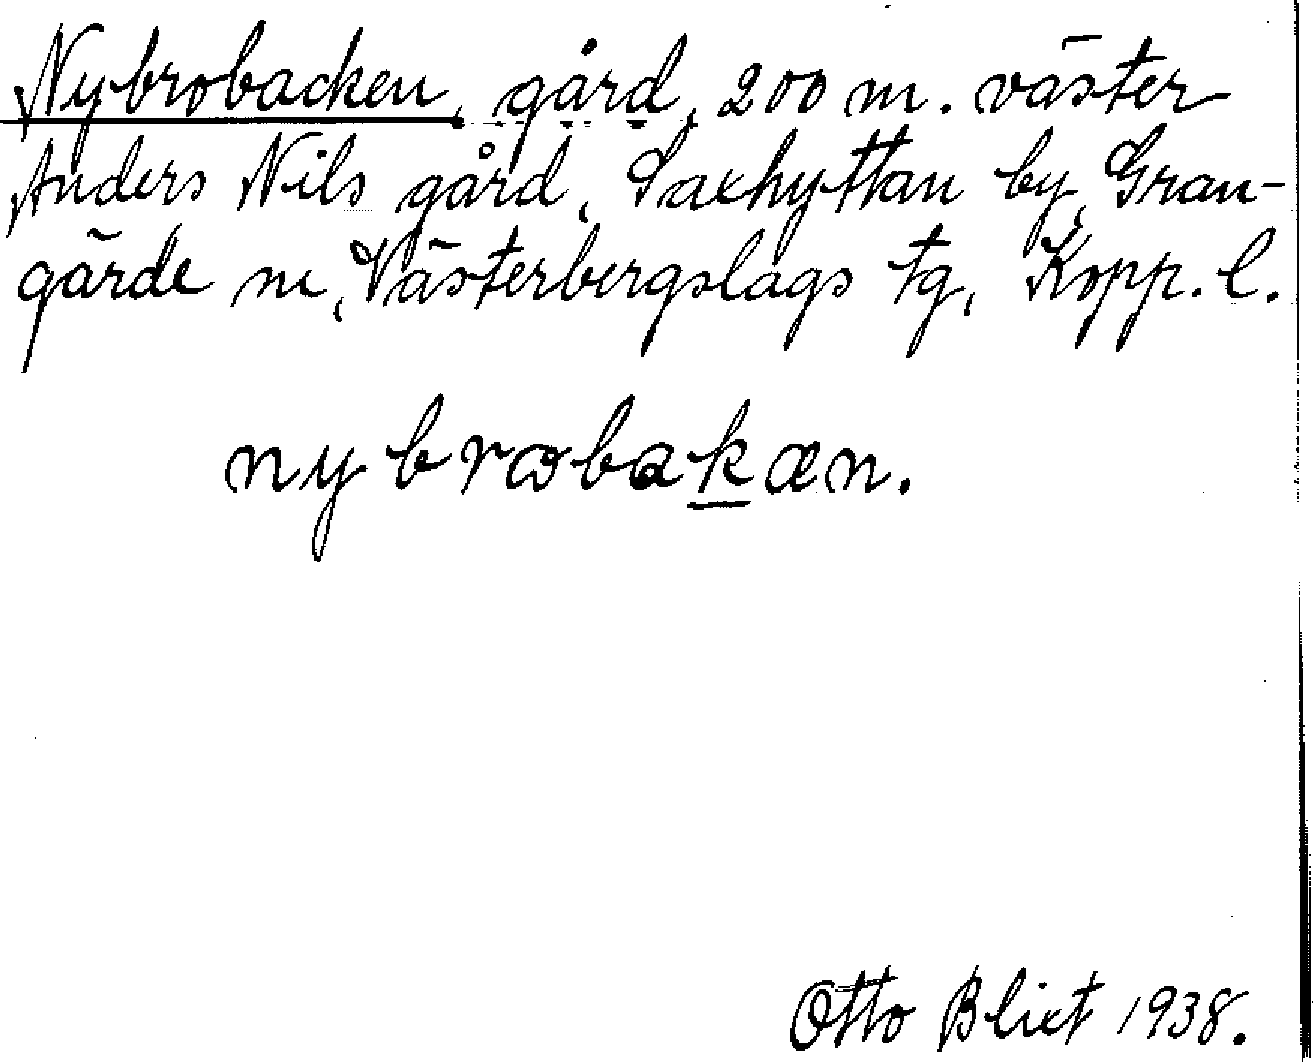 Nybrobacken, gård, 200 m. väster
Anders Nils gård, Saxhyttan by, Gran-
gärde sn, Västerbergslags tg, Kopp. l.
nybrωbakæn.
Otto Blixt 1938.